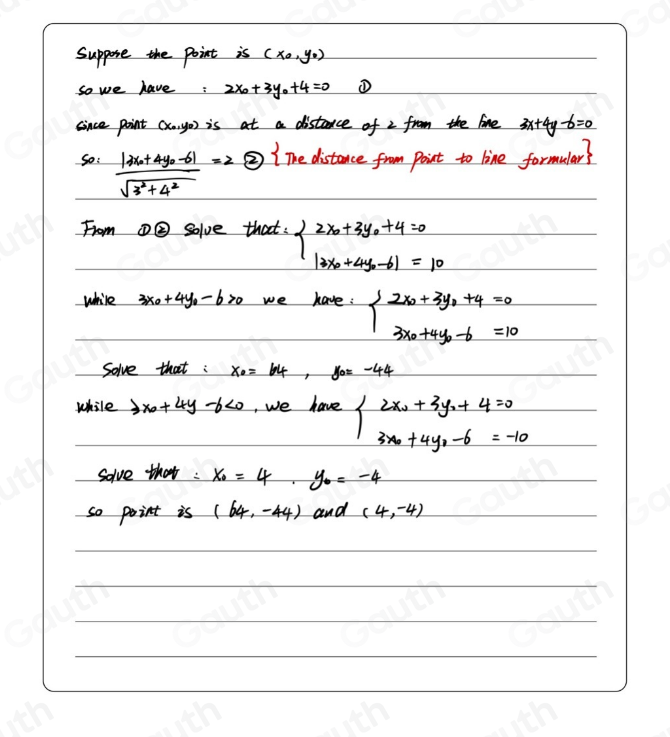 Suppose the point is (x₀,y₀)
so we have : 2x₀+3y₀+4=0 ①
since point (x₀,y₀) is at a distance of 2 from the line 3x+4y-6=0
so: |3x₀+4y₀-6| / √3²+4² =2 ② {The distance from point to line formular}
From ①② solve that: { 2x₀+3y₀+4=0
|3x₀+4y₀-6| = 10
while 3x₀+4y₀-6>0 we have: { 2x₀+3y₀+4=0
3x₀+4y₀-6 =10
Solve that : x₀= 64 , y₀= -44
while 3x₀+4y-6<0, we have { 2x₀+3y₀+4=0
3x₀+4y₀-6 = -10
solve that : x₀ = 4 . y₀ = -4
so point is (64,-44) and (4,-4)